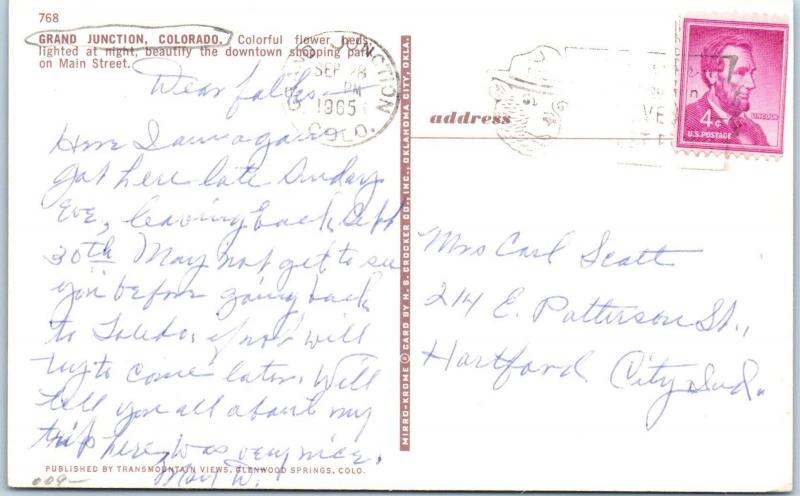 768
GRAND JUNCTION, COLORADO. Colorful flower beds,
lighted at night, beautify the downtown shopping park
on Main Street.
GRAND JUNCTION
SEP 28
PM
1965
COLO.
4¢
LINCOLN
U.S. POSTAGE
Dear folks—
Here I am again
got here late Sunday
Eve, leaving back Sept
30th May not get to see
you before going back
to Toledo, if not will
try to come later. Will
tell you all about my
trip here, was very nice.
Mary W.
address
Mrs Carl Scott
214 E. Patterson St.,
Hartford City Ind.
MIRRO-KROME ® CARD BY H. S. CROCKER CO., INC., OKLAHOMA CITY, OKLA.
PUBLISHED BY TRANSMOUNTAIN VIEWS, GLENWOOD SPRINGS, COLO.
009—